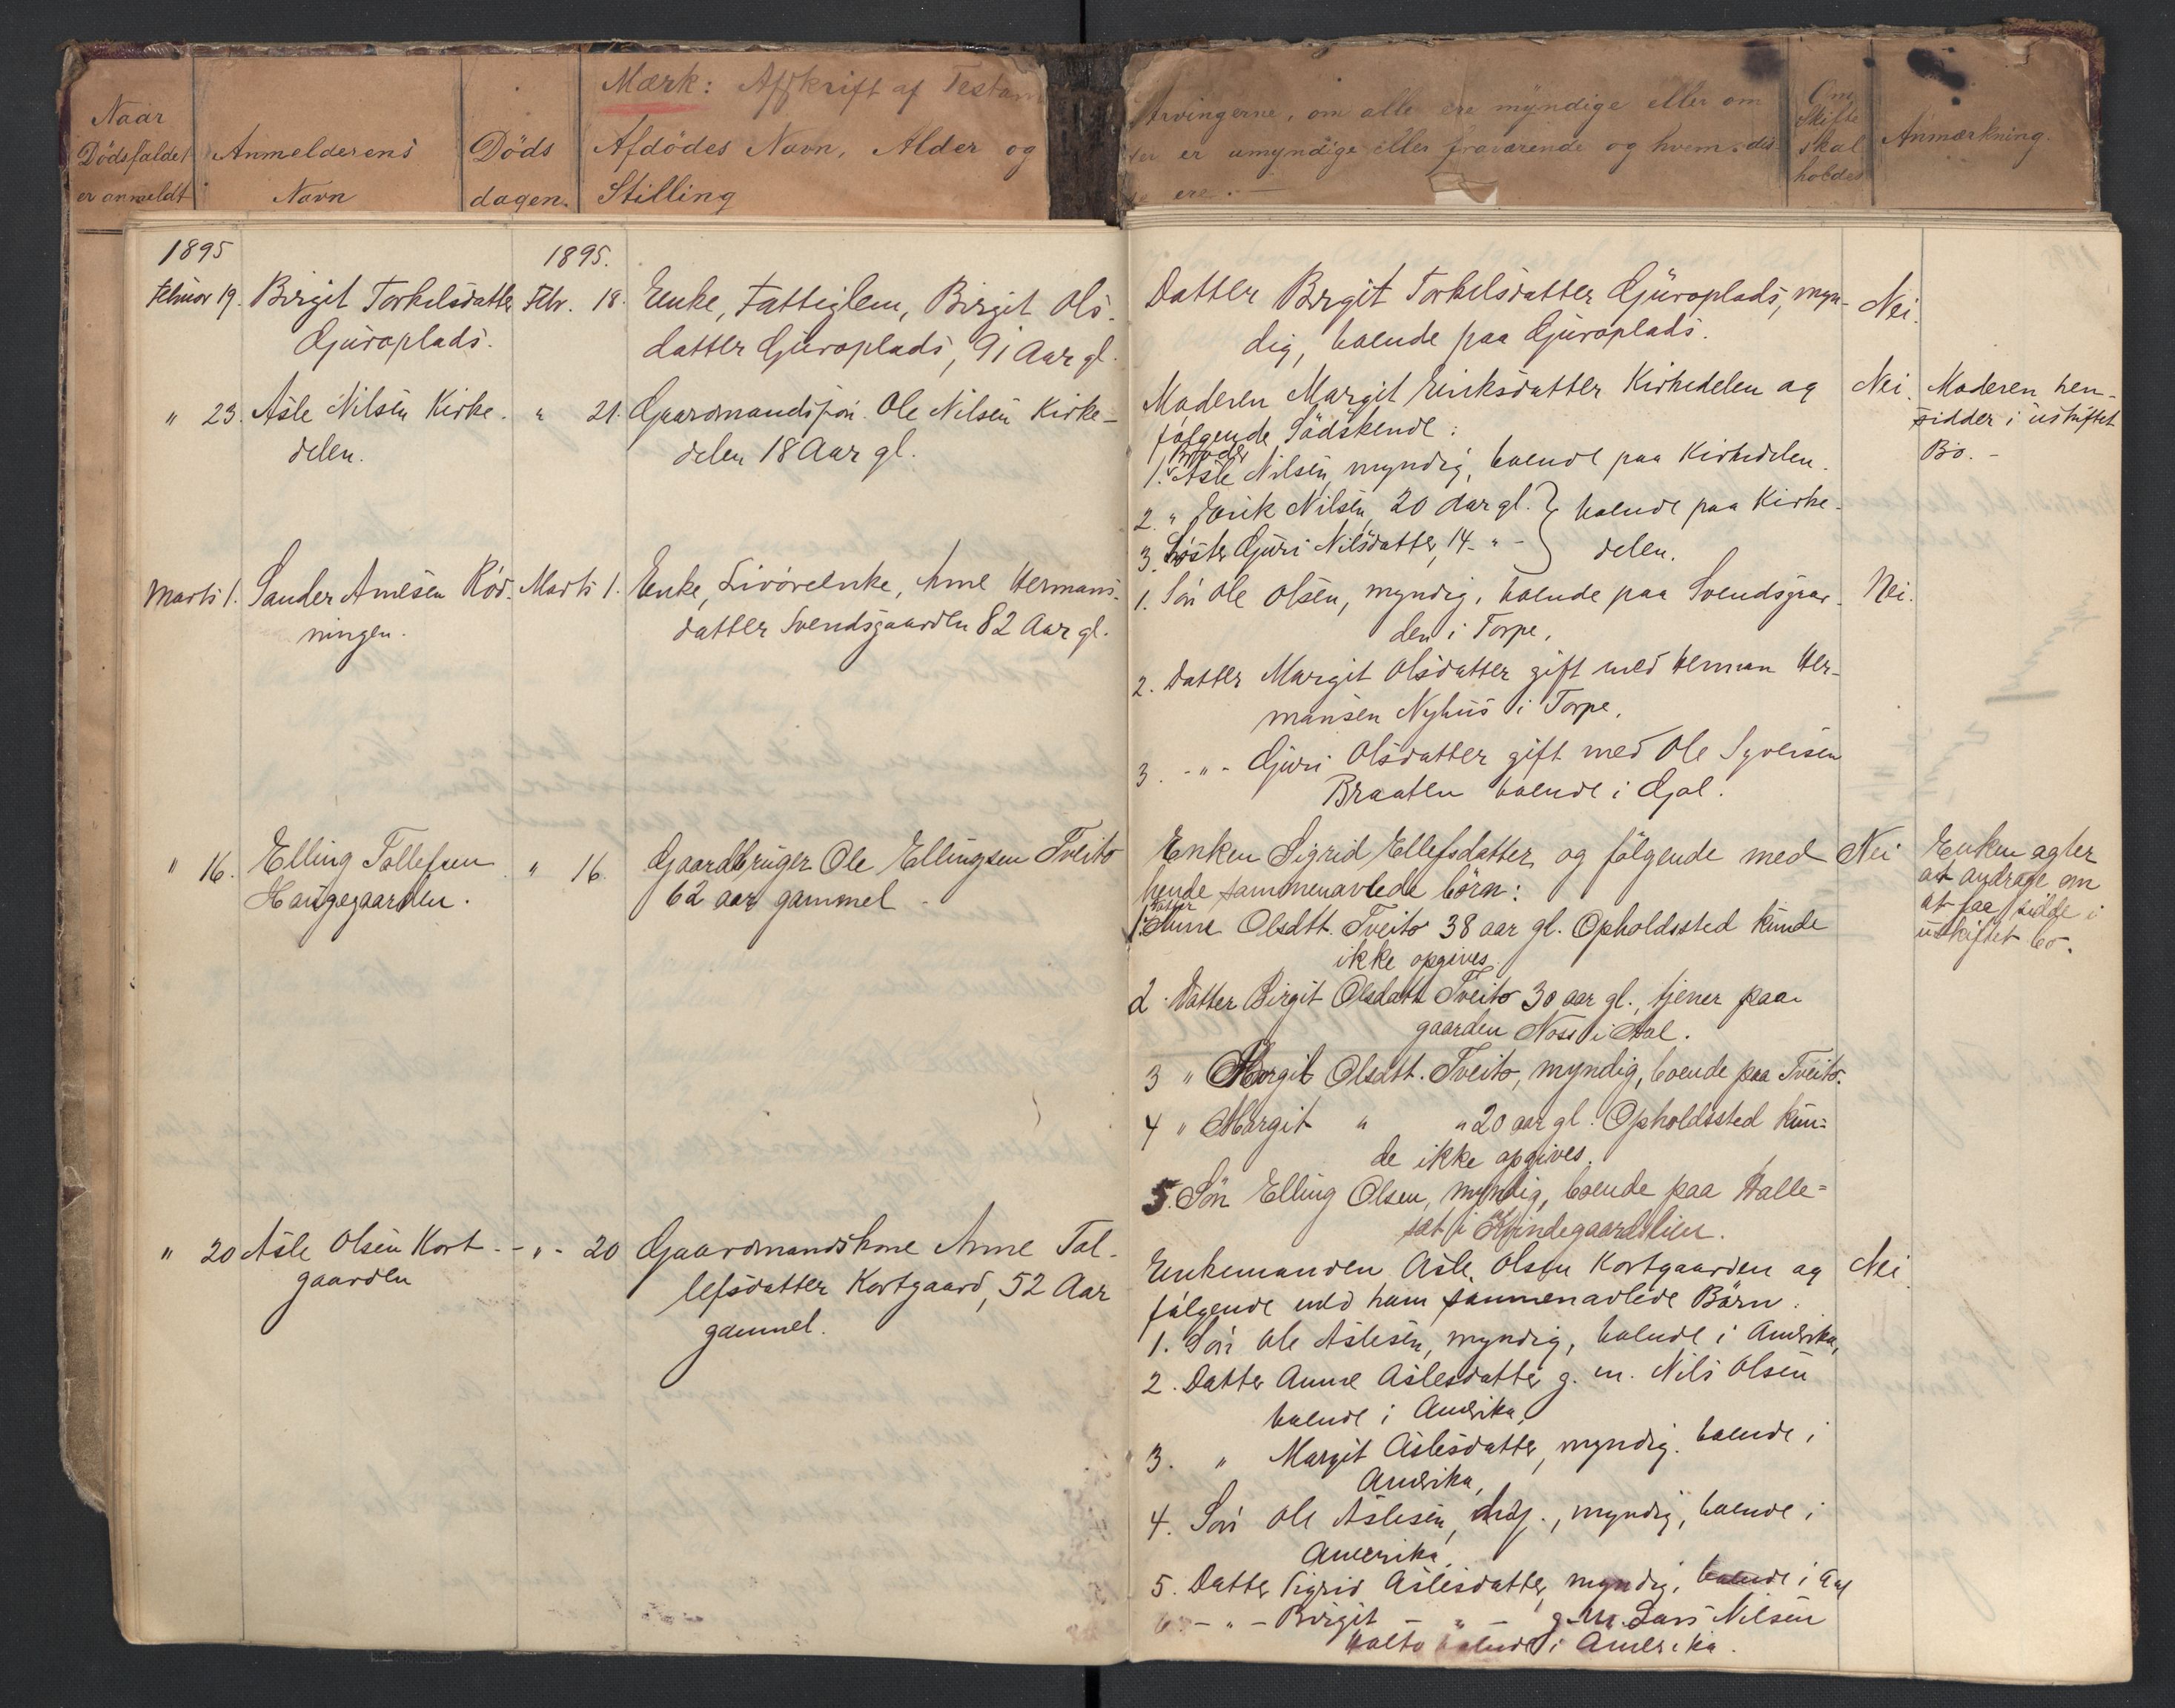 Mærk: Afskrift af Testam
Naar
Dödsfaldet
er anmeldt
Anmelderens
Navn
Döds
dagen.
Afdödes Navn, Alder og
Stilling
Arvingerne, om alle ere myndige eller om
er umyndige eller fraværende og hvem dis-
ere.
Om
Skifte
skal
holdes
Anmærkning.
1895
1895.
Februar 19. Birgit Torkelsdatter Febr. 18. Enke, Fattiglem, Birgit Ols-
Guroplads.
datter Guroplads, 91 Aar gl.
Datter Birgit Torkelsdatter Guroplads, myn- Nei.
dig, boende paa Guroplads.
" 23. Asle Nilsen Kirke- " 21. Gaardmandssøn Ole Nilsen Kirke-
delen.
delen 18 Aar gl.
Moderen Margit Eriksdatter Kirkedelen og Nei. Moderen hen-
følgende Södskende:
sidder i uskiftet
Bo. -
Broder
1. Asle Nilsen, myndig, boende paa Kirkedelen.
2. " Erik Nilsen, 20 Aar gl. } boende paa Kirke-
3. Søster Guri Nilsdatter, 14 - " - delen.
Marts 1. Sander Arnesen Röd- Marts 1. Enke, Livöreenke, Arne Hermans-
ningen.
datter Svendsgaarden 82 Aar gl.
1. Sön Ole Olsen, myndig, boende paa Svendsgaar- Nei.
den i Torpe.
2. Datter Margit Olsdatter gift med Herman Her-
mansen Nyhus i Torpe.
3. - " - Guri Olsdatter gift med Ole Syversen
Braaten boende i Gol.
" 16. Elling Tollefsen " 16. Gaardbruger Ole Ellingsen Tveito
Haugegaarden.
62 aar gammel.
Enken Sigrid Ellefsdatter og fölgende med Nei
hende sammenavlede börn:
Enken agter
at andrage om
at faa sidde i
uskiftet bo.
Datter
1. Anne Olsdtt. Tveito 38 aar gl. Opholdssted kunde
ikke opgives.
2. Datter Birgit Olsdatt Tveito 30 aar gl., tjener paa
gaarden Noss i Aal.
3 " Margit Olsdtt. Tveito, myndig, boende paa Tveito.
4 " Margit " " 20 aar gl. Opholdssted kun-
de ikke opgives.
5. Sön Elling Olsen, myndig, boende paa Halle-
set i Kvindegaardslien.
" 20 Asle Olsen Kort- - " - 20 Gaardmandskone Anne Tol-
gaarden
lefsdatter Kortgaard, 52 Aar
gammel.
Enkemanden Asle Olsen Kortgaarden og Nei
følgende med ham sammenavlede Börn.
1. Sön Ole Aslesen, myndig, boende i Amerika,
2. Datter Anne Aslesdatter g. m. Nils Olsen
boende i Amerika,
3. " Margit Aslesdatter, myndig. boende i
Amerika,
4. Sön Ole Aslesen, , myndig, boende i
Amerika.
5. Datter Sigrid Aslesdatter, myndig, boende i Aal
6. - " - Birgit - " - g. m. Lars Nilsen
boende i Amerika.